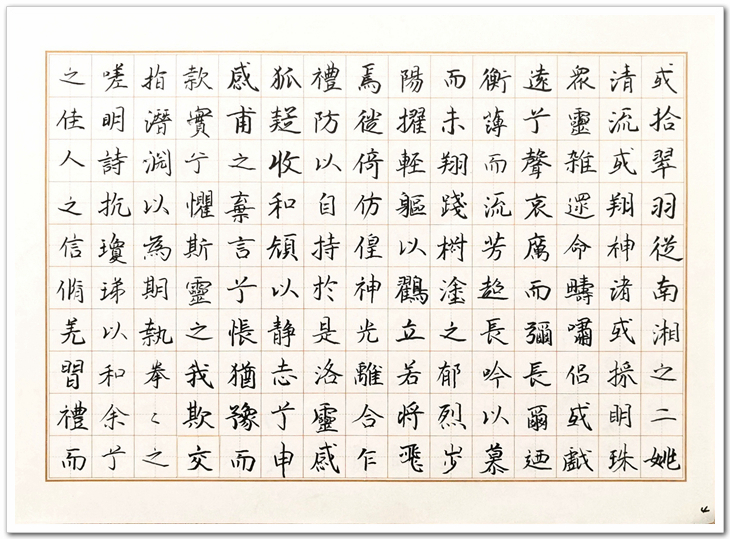 或拾翠羽從南湘之二姚
清流或翔神渚或採明珠
衆靈雜遝命疇嘯侶或戲
遠兮聲哀厲而彌長爾迺
衡薄而流芳超長吟以慕
而未翔踐椒塗之郁烈步
陽擢輕軀以鶴立若將飛
焉徙倚仿偟神光離合乍
禮防以自持於是洛靈感
狐疑收和顔以静志兮申
感甫之棄言兮悵猶豫而
款實兮懼斯靈之我欺交
指潛淵以為期執拳々之
嗟明詩抗瓊珶以和余兮
之佳人之信脩羌習禮而
4